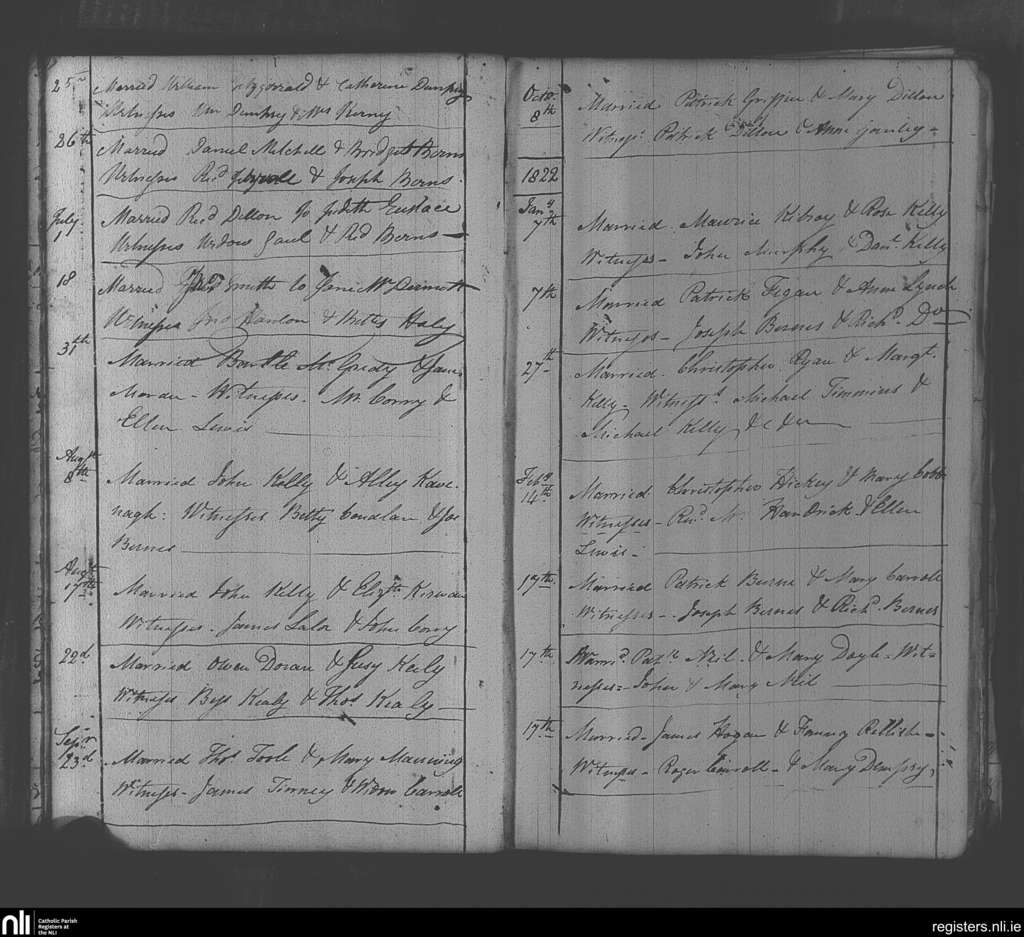 25
Married William Fitzgerrald & Catherine Dempsy
Witnesses Wm Dempsy & Mrs Kerney
26th
Married Daniel Mitchell & Bridget Berns
Witnesses Rid & Joseph Berns
July 1
Married Rid Dillon To Judith Eustace
Witnesses Widow Gaul & Rid Berns
18
Married Smith to Jane McDermott
Witnesses Jno Hanlon & Haly
31th
Married Bartle McGredy & Jane
Moran - Witnesses - Mr. Conry &
Ellen Lewis
Augst 8th
Married John Kelly & Alley Kave-
nagh: Witnesses Betty Condlan & Jos
Bernes
Augst 17th
Married John Kelly & Elizth Kirwan
Witnesses - James Lalor & John Conry
22d
Married Owen Doran & Susy Kealy
Witness Bess Kealy & Thos Kealy
Sepr 23d
Married Thos Toole & Mary Manning
Witnesses - James Tinney & Widow Carroll
Octo. 8th
Married Patrick Griffin & Mary Dillon
Witness Patrick Dillon & Anne
1822
Jany 7th
Married Maurice & Rose Kelly
Witnesses - John Murphy & Danl Kelly
7th
Married Patrick Fegan & Anne Lynch
Witnesses - Joseph Bernes & Richd. Do
27th
Married Christopher Ryan & Margt.
Kelly - Witnesses Michael Timmins &
Michael Kelly &c &c
Feby 14th
Married Christopher Hickey & Mary
Witnesses - Revd. Mr. Handrick & Ellen
Lewis -
17th
Married Patrick Burne & Mary Carroll
Witnesses - Joseph Bernes & Richd. Bernes
17th
Marrd. Patk Neil & Mary Doyle - Wit-
nesses - John & Mary Neil
17th
Married - James Hogan & Fanny Rellish -
Witnesses - Roger Carroll - & Mary Dempsey
nli
Catholic Parish
Registers at
the NLI
registers.nli.ie